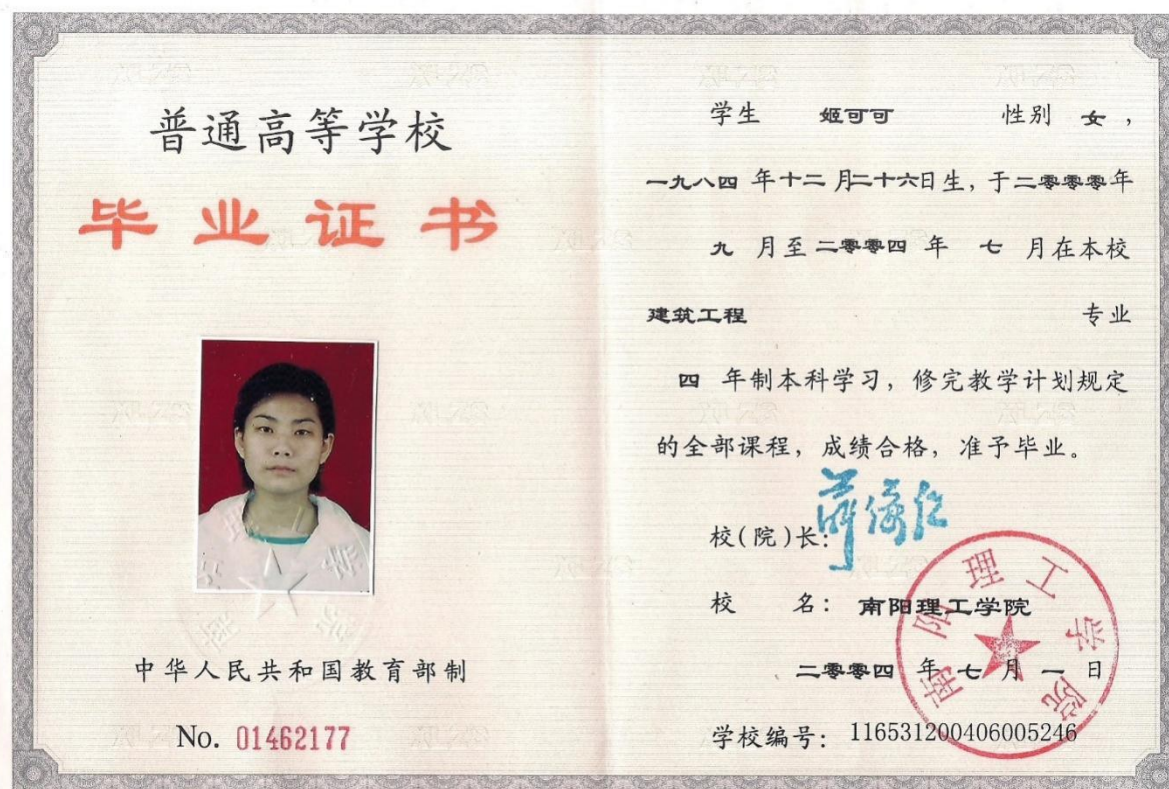 普通高等学校
毕业证书
中华人民共和国教育部制
No. 01462177
学生 姬可可 性别 女，
一九八四 年十二月二十六日生，于二零零零年
九 月至二零零四 年 七 月在本校
建筑工程 专业
四 年制本科学习，修完教学计划规定
的全部课程，成绩合格，准予毕业。
校(院)长：
校 名： 南阳理工学院
二零零四 年 七 月 一 日
学校编号： 116531200406005246
南阳理工学院